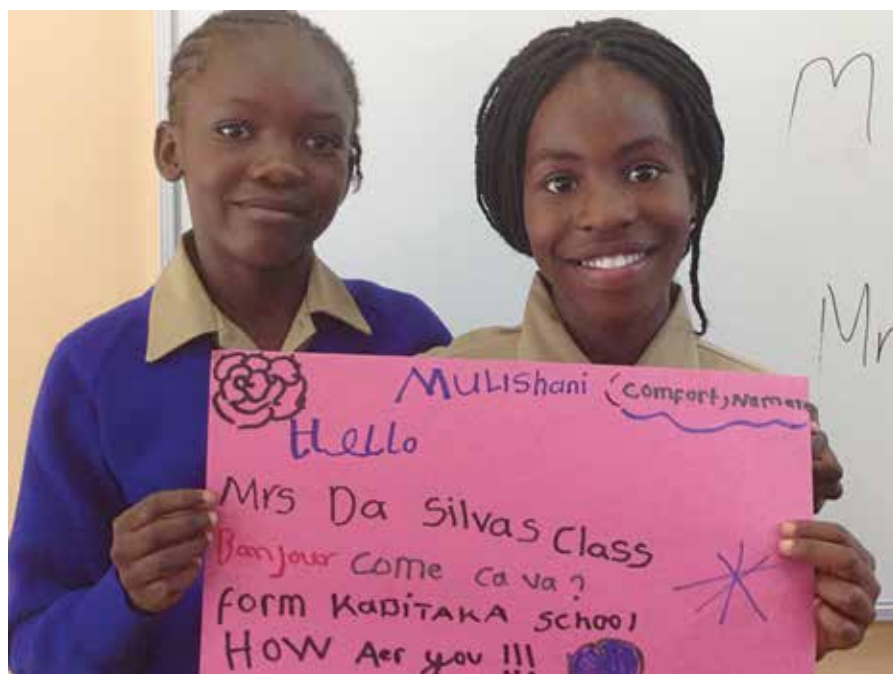 M
Mr
MULIShani (comfort,
Hello
Mrs Da Silvas Class
Banjour come ca va?
form KABITAKA school
HOW Aer you !!!